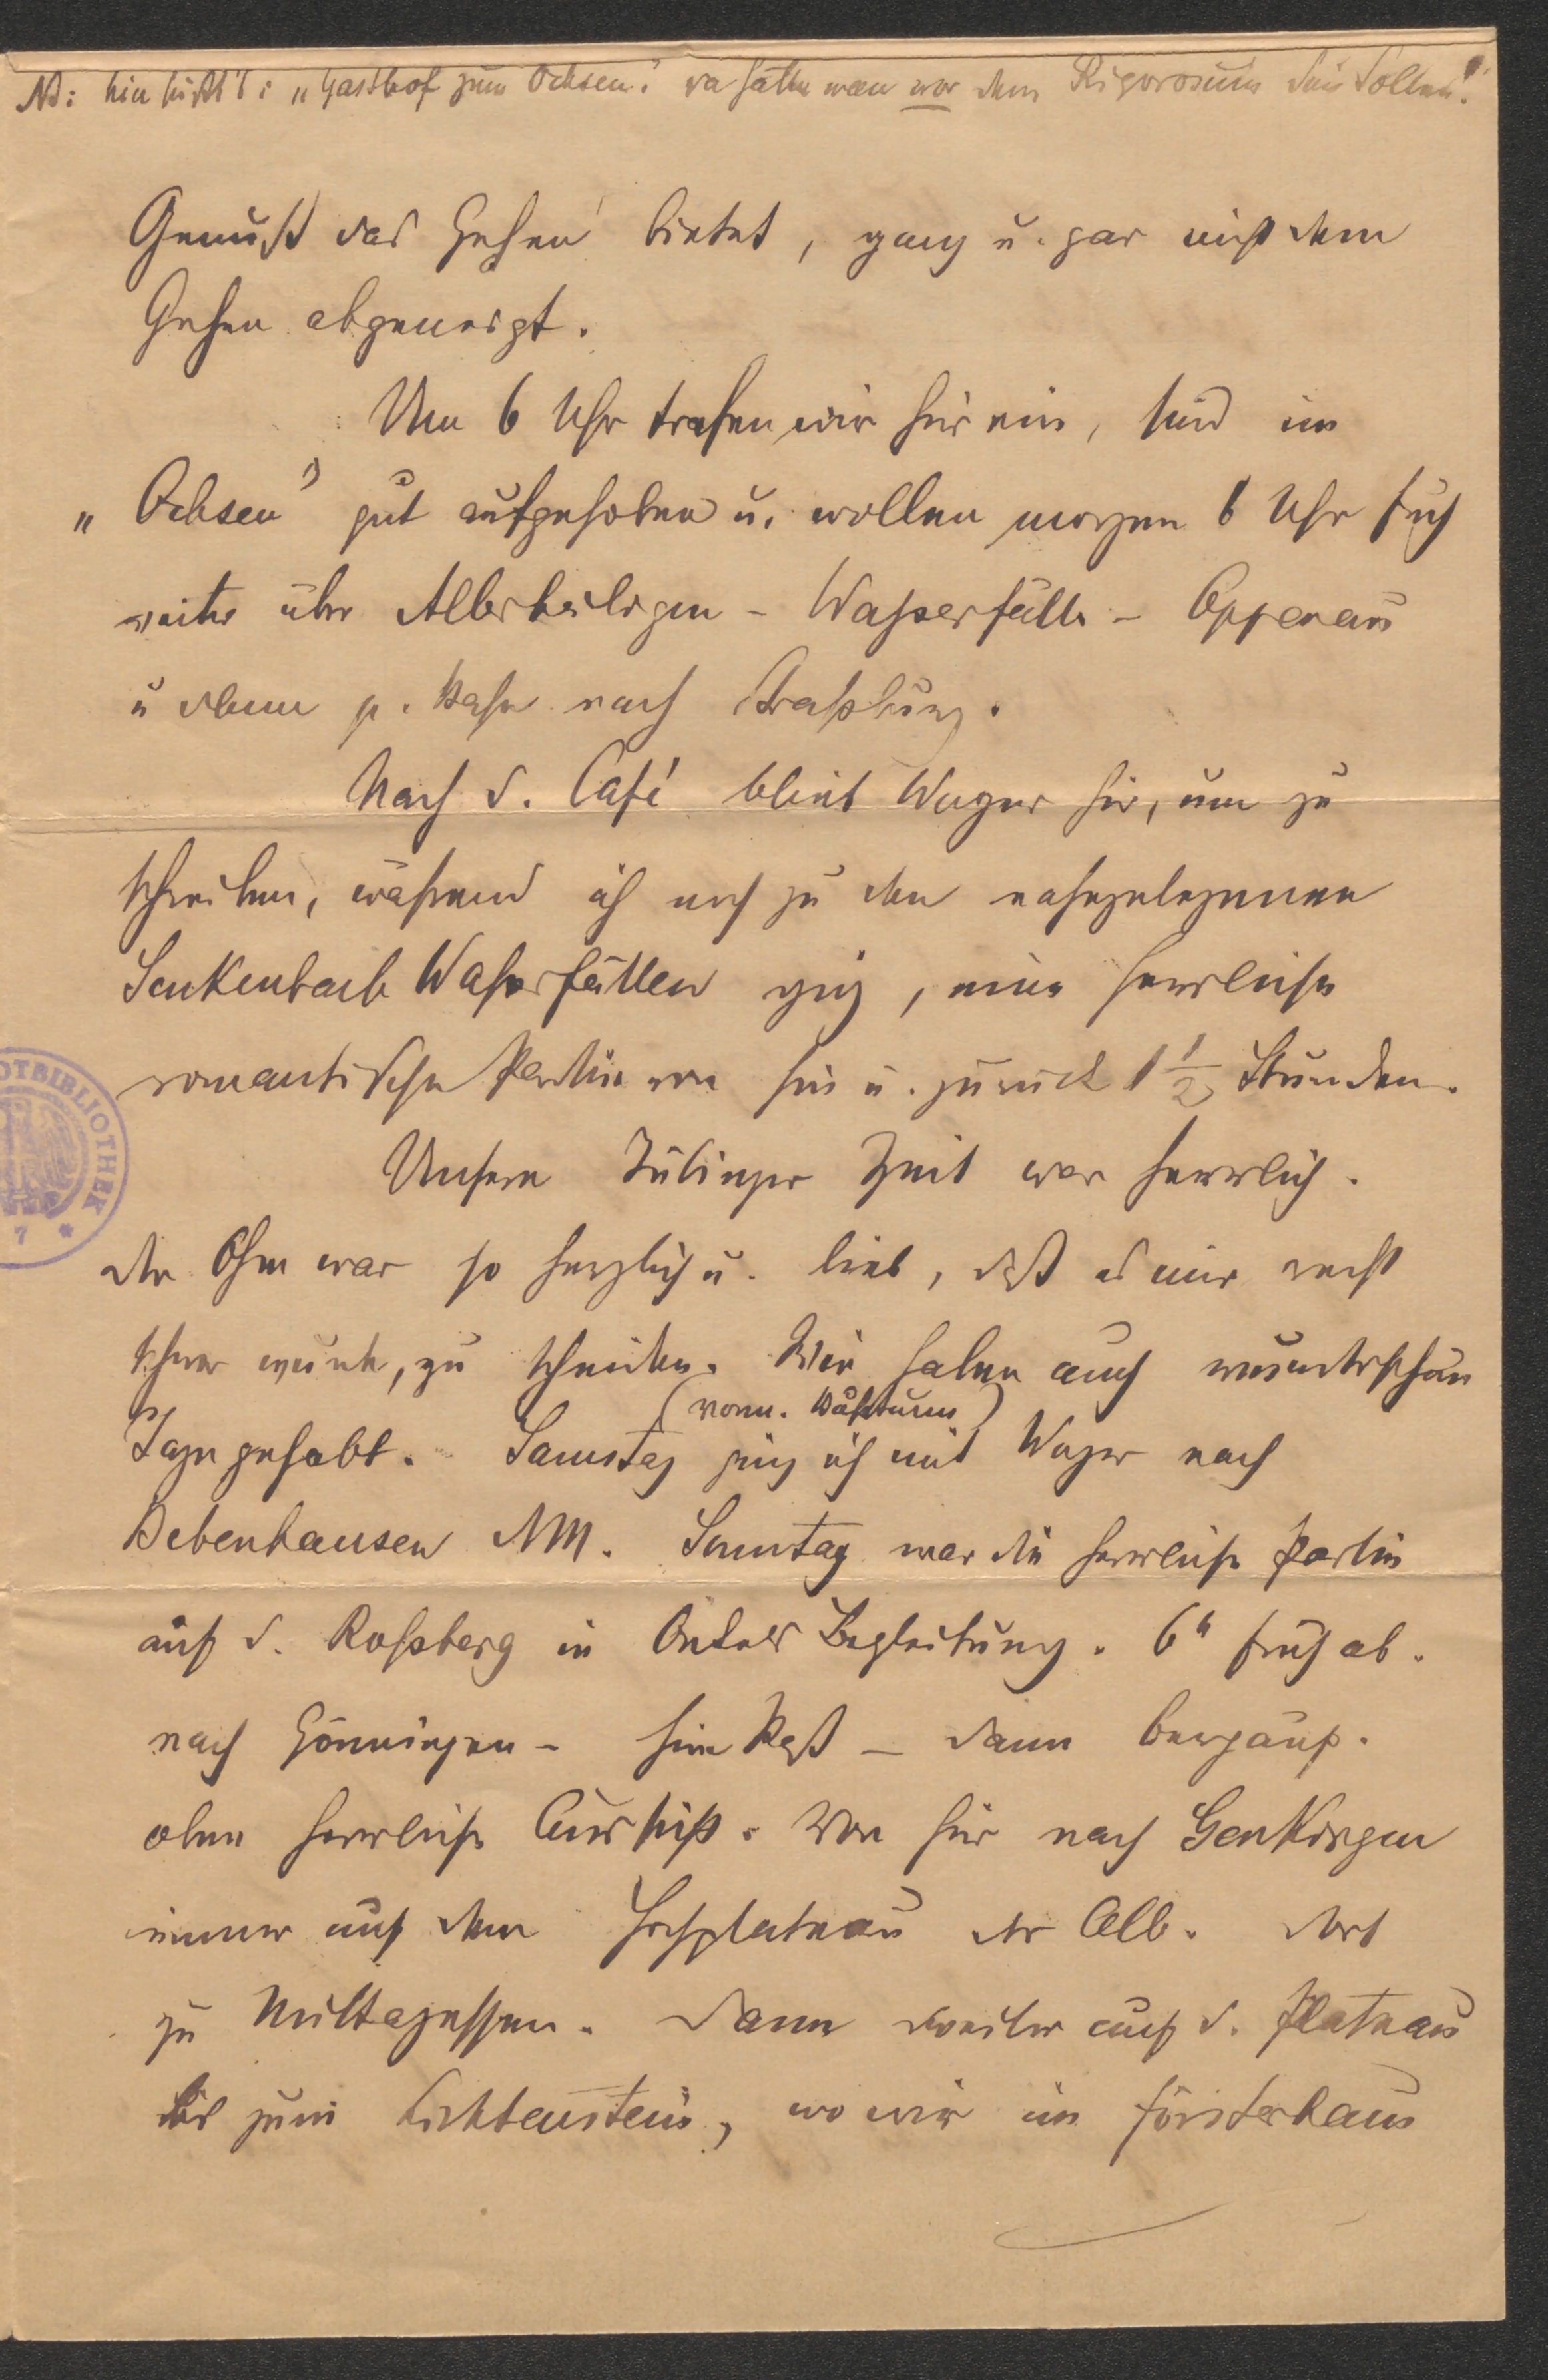 NB: hier heißt's: „Gasthof zum Ochsen". da hätte man vor dem Rigorosum sein sollen!"
Genuß das Gehen bietet, ganz u. gar nicht dem
Gehen abgeneigt.
Um 6 Uhr trafen wir hier ein, sind im
„Ochsen" gut aufgehoben u. wollen morgen 6 Uhr früh
weiter über Allerheiligen - Waßerfälle - Oppenau
u dann p. Bahn nach Straßburg.
Nach d. Café blieb Wager hier, um zu
schreiben, während ich noch zu den nahegelegenen
Sankenbach Waßerfällen ging, eine herrliche
romantische Partie von hin u. zurück 1 1/2 Stunden.
Unsere Tübinger Zeit war herrlich.
Der Ohm war so herzlich u. lieb, daß es mir recht
schwer wurde, zu scheiden. Wir haben auch wunderschöne
(vorm. )
Tage gehabt. Samstag ging ich mit Wager nach
Bebenhausen NM. Sonntag war die herrliche Partie
auf d. Roßberg in Onkels Begleitung. 6h früh ab.
nach Gönningen - hier Rast - dann bergauf.
oben herrliche Aussicht. Von hier nach Genkingen
immer auf dem Hochplateau der Alb. dort
zu Mittagessen. Dann weiter auf d. Plateau
bis zum Lichtenstein, wo wir im Försterhaus
OTBIBLIOTHEK
7 *